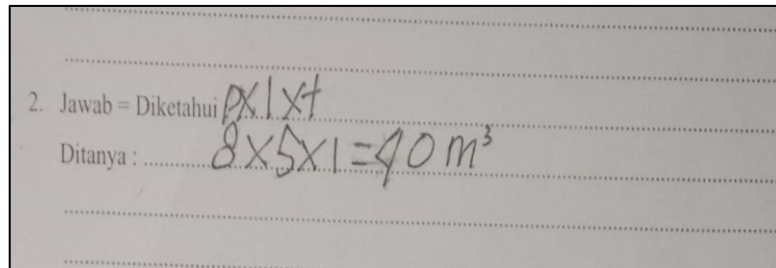 2. Jawab = Diketahui pxlxt
Ditanya : ........... 8x5x1=40 m³